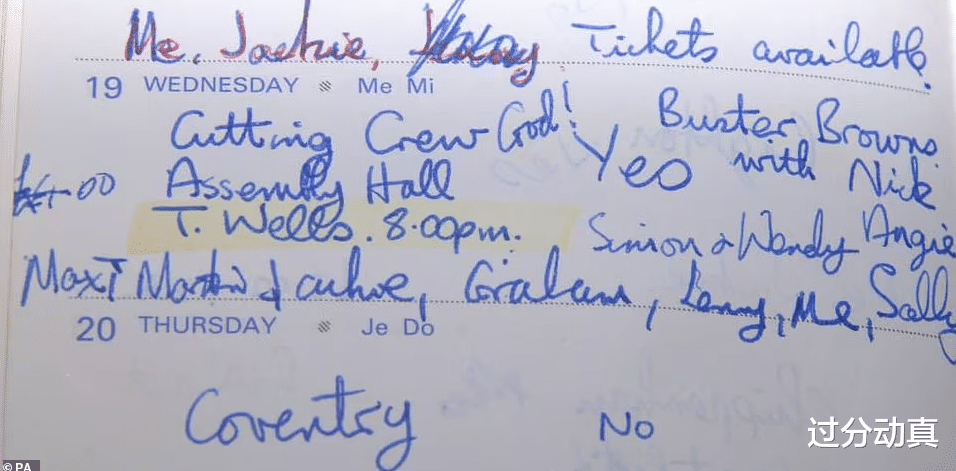 Me, Jackie, Tickets available.
19 WEDNESDAY Me Mi
Cutting Crew God! Buster Browns
Yes with Nick
£4.00 Assembly Hall
T. Wells. 8.00pm. Simon & Wendy Angie
Graham, Lenny, Me, Sally
20 THURSDAY Je Do
Coventry No
© PA
过分动真